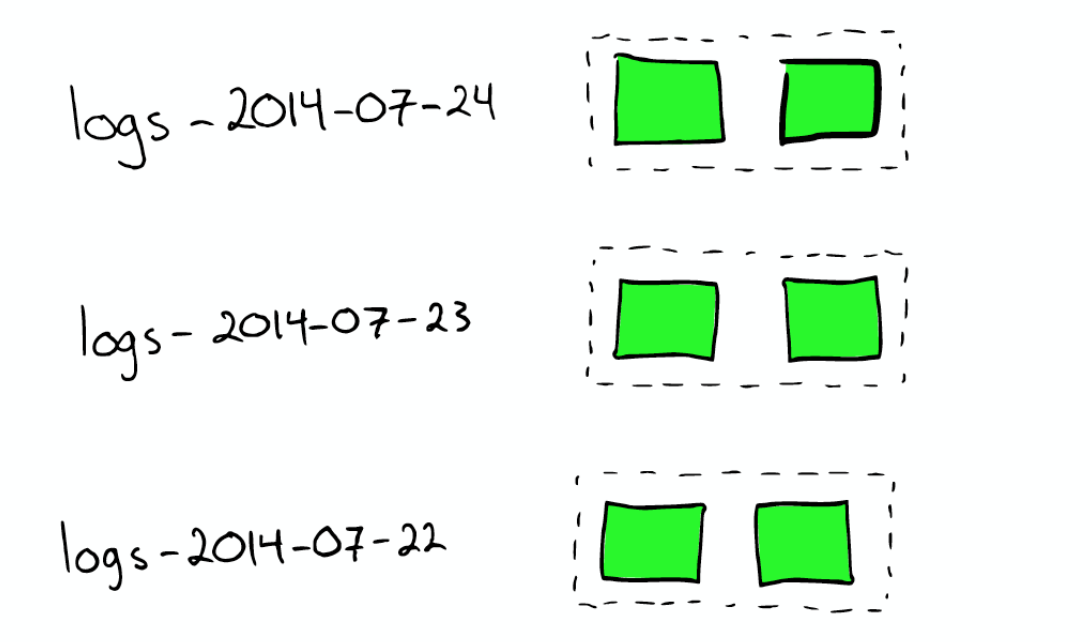 logs - 2014-07-24
logs - 2014-07-23
logs - 2014-07-22